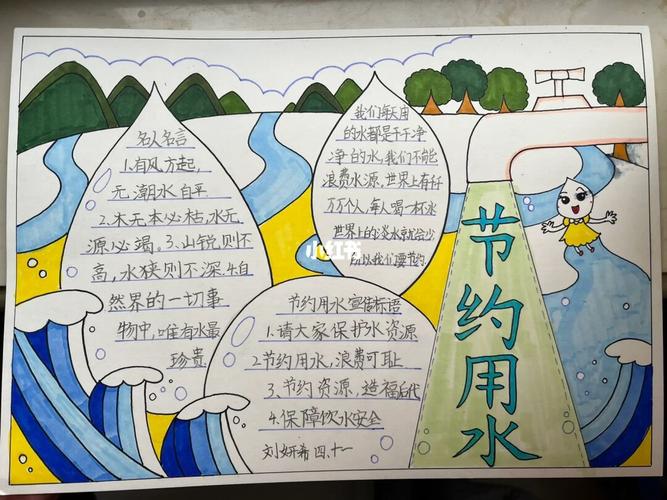 名人名言
1.有风方起,
无潮水自平
2.木无本必枯,水无
源必竭。3.山锐则不
高,水狭则不深4.自
然界的一切事
物中,唯有水最
珍贵.
我们每天用
的水都是干干净
净的水,我们不能
浪费水源,世界上有仟
万万个人,每人喝一杯水
世界上的淡水就会少
所以我们要节约
小红书
节约用水宣传标语
1.请大家保护水资源
2.节约用水,浪费可耻
3.节约资源,造福后代
4.保障饮水安全
刘妍希 四.十一
节约用水